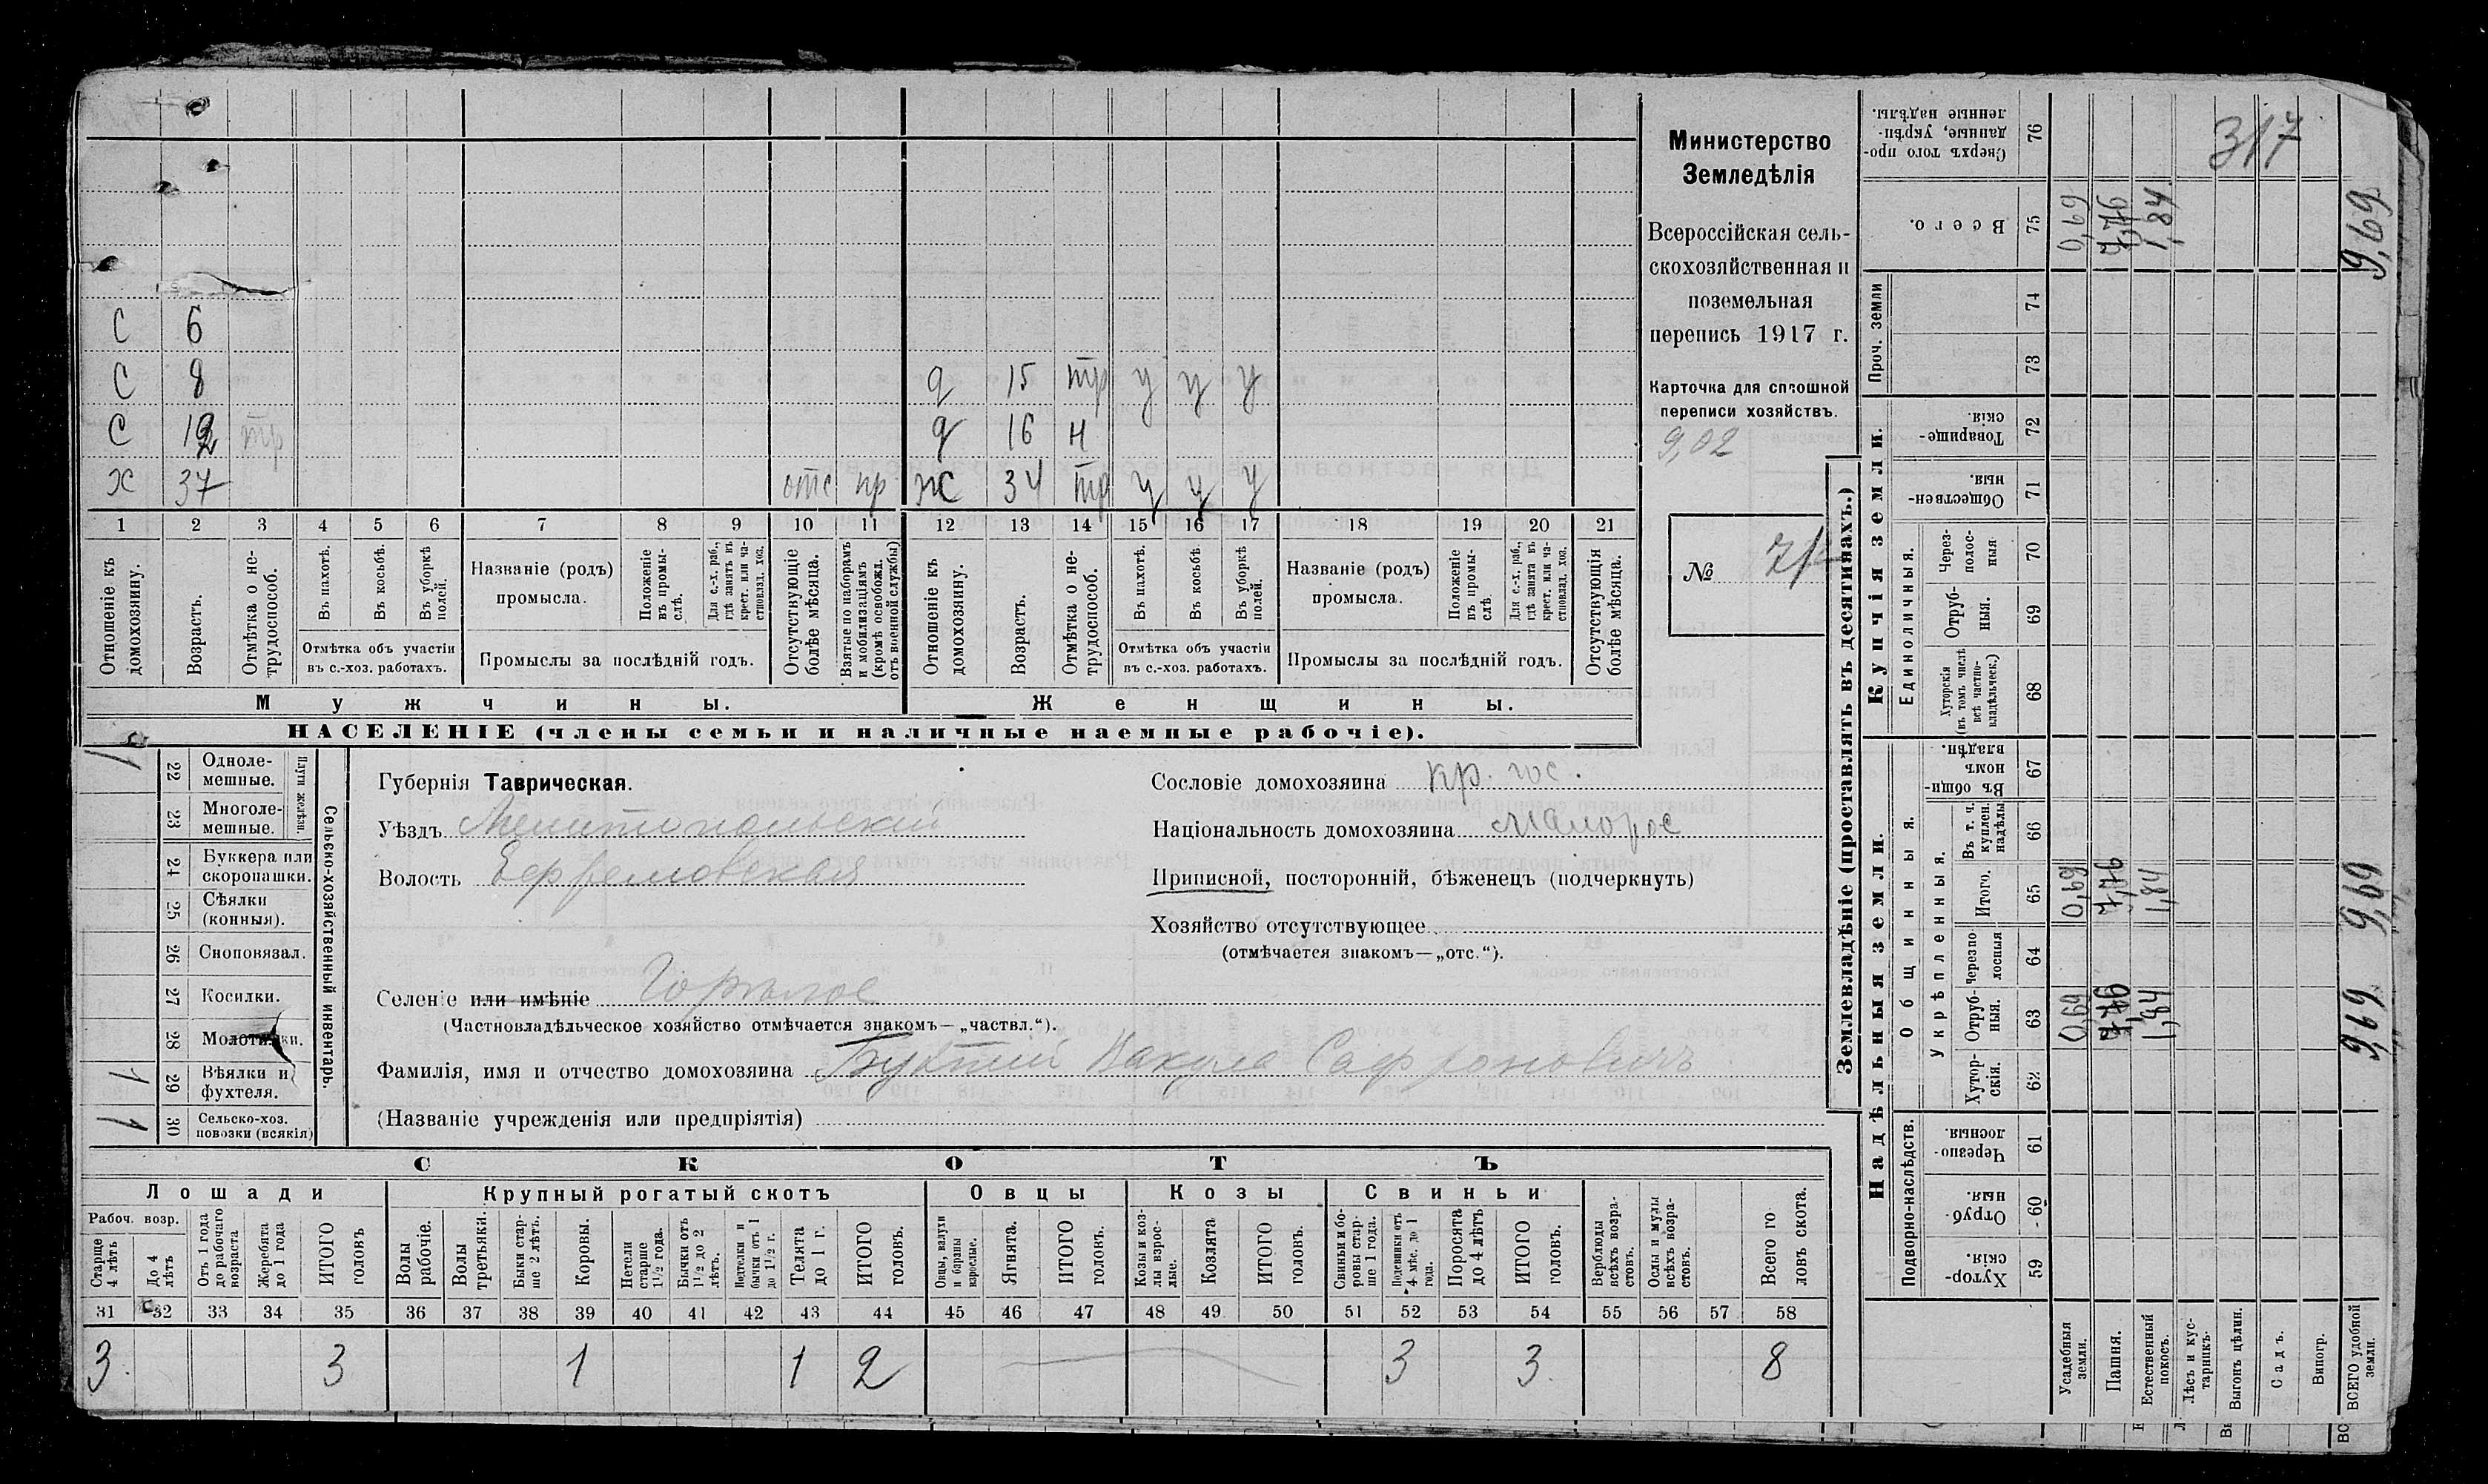 Министерство
Земледѣлія
Всероссійская сель-
скохозяйственная и
поземельная
перепись 1917 г.
Карточка для сплошной
переписи хозяйствъ.
9,02
№
317
С 6
С 8 д 15 тр у у у
С 12 тр д 16 н
х 37 отс пр ж 34 тр у у у
1 2 3 4 5 6 7 8 9 10 11 12 13 14 15 16 17 18 19 20 21
Отношеніе къ домохозяину.
Возрастъ.
Отмѣтка о не-трудоспособ.
Въ пахотѣ.
Въ косьбѣ.
Въ уборкѣ полей.
Отмѣтка объ участіи
въ с.-хоз. работахъ.
Названіе (родъ)
промысла.
Положеніе въ промы-слѣ.
Для с.-х. раб., гдѣ занятъ въ крест. или ча-стновлад. хоз.
Промыслы за послѣдній годъ.
Отсутствующіе болѣе мѣсяца.
Взятые по наборамъ и мобилизаціямъ (кромѣ освобожд. отъ военной службы)
Отношеніе къ домохозяину.
Возрастъ.
Отмѣтка о не-трудоспособ.
Въ пахотѣ.
Въ косьбѣ
Въ уборкѣ полей.
Отмѣтка объ участіи
въ с.-хоз. работахъ.
Названіе (родъ)
промысла.
Положеніе въ промы-слѣ
Для с.-х. раб., гдѣ занята въ крест. или ча-стновлад. хоз.
Промыслы за послѣдній годъ.
Отсутствующія болѣе мѣсяца.
Мужчины.
Женщины.
НАСЕЛЕНІЕ (члены семьи и наличные наемные рабочіе).
Сельско-хозяйственный инвентарь.
Плуги желѣзн.
22 Одноле-мешные. 1
23 Многоле-мешные.
24 Буккера или скоропашки.
25 Сѣялки (конныя).
26 Сноповязал.
27 Косилки.
28 Молотилки.
29 Вѣялки и фухтеля. 1
30 Сельско-хоз. повозки (всякія) 1
Губернія Таврическая.
Уѣздъ Мелитопольскій
Волость Ефремовская
Сословіе домохозяина кр. гос.
Національность домохозяина малорос
Приписной, посторонній, бѣженецъ (подчеркнуть)
Хозяйство отсутствующее
(отмѣчается знакомъ—„отс.“).
Селеніе или имѣніе Горѣлое
(Частновладѣльческое хозяйство отмѣчается знакомъ—„частвл.“).
Фамилія, имя и отчество домохозяина Вакула Сафроновичъ
(Названіе учрежденія или предпріятія)
СКОТЪ
Лошади
Крупный рогатый скотъ
Овцы
Козы
Свиньи
Рабоч. возр.
Старше 4 лѣтъ
До 4 лѣтъ
Отъ 1 года до рабочаго возраста
Жеребята до 1 года
ИТОГО головъ
Волы рабочіе.
Волы третьяки.
Быки стар-ше 2 лѣтъ.
Коровы.
Нетели старше 1½ года.
Бычки отъ 1½ до 2 лѣтъ.
Подтелки и бычки отъ 1 до 1½ г.
Телята до 1 г.
ИТОГО головъ.
Овцы, валухи и бараны взрослые.
Ягнята.
ИТОГО головъ.
Козы и коз-лы взрос-лые.
Козлята
ИТОГО головъ.
Свиньи и бо-ровы стар-ше 1 года.
Подсвинки отъ 4 мѣс. до 1 года.
Поросята до 4 лѣтъ
ИТОГО головъ.
Верблюды всѣхъ возра-стовъ.
Ослы и мулы всѣхъ возра-стовъ.
Всего го ловъ скота.
31 32 33 34 35 36 37 38 39 40 41 42 43 44 45 46 47 48 49 50 51 52 53 54 55 56 57 58
3 3 1 1 2 3 3 8
Землевладѣніе (проставлять въ десятинахъ.)
Надѣльныя земли.
Купчія земли.
Проч. земли
Подворно-наслѣдств.
Общинныя.
Укрѣпленныя.
Единоличныя.
Хутор-скія. 59
Отруб-ныя. 60
Черезпо-лосныя. 61
Хутор-скія. 62
Отруб-ныя. 63 0,69 7,76 1,84 9,69
Черезпо-лосныя 64
Итого. 65 0,69 7,76 1,84 9,69
Въ т. ч. куплен. надѣлы 66
Въ общи-номъ владѣн. 67
Хуторскія (въ томъ числѣ всѣ частно-владѣльческ.) 68
Отруб-ныя. 69
Через-полос-ныя 70
Обществен-ныя. 71
Товарище-скія. 72
73
74
Всего. 75 0,69 7,76 1,84 9,69
Сверхъ того про-данные, укрѣп-ленные надѣлы. 76
Усадебныя земли.
Пашня.
Естественный покосъ.
Лѣсъ и кус-тарникъ.
Выгонъ цѣлин.
Садъ.
Виногр.
ВСЕГО удобной земли.